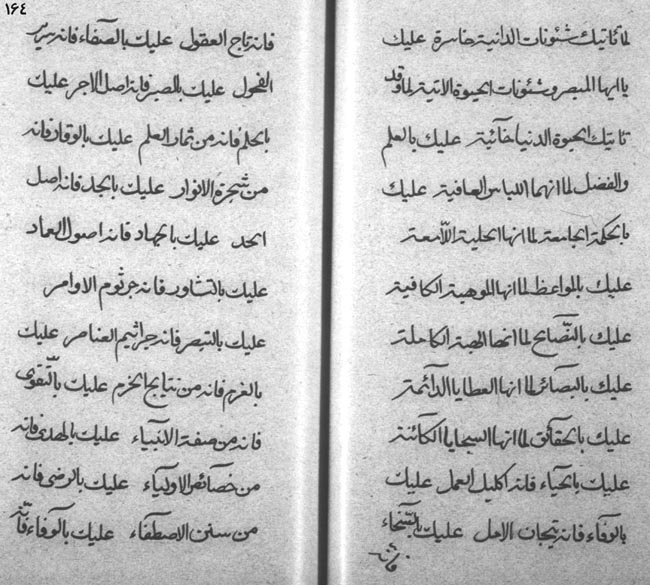 لما تأتيك شئونات الدانية خاسرة عليك
يا ايها المبصر و شئونات الحيوة الاتية لما وقد
تاتيك الحيوة الدنيا خائبة عليك بالعلم
والفضل لما انهما اللباس العافية عليك
بالحكمة الجامعة لما انها الحلية اللامعة
عليك بالمواعظ لما انها الموهبة الكافية
عليك بالنصايح لما انها الهبة الكاملة
عليك بالبصائر لما انها العطايا الدائمة
عليك بالحقائق لما انها السجايا الكائنة
عليك بالحياء فانه اكليل العمل عليك
بالوفاء فانه تيجان الامل عليك بالسخاء
فانه
١۶٤
فانه تاج العقول عليك بالصفاء فانه سرير
الفحول عليك بالصبر فانه اصل الاجر عليك
بالحلم فانه من ثمار العلم عليك بالوقار فانه
من شجرة الانوار عليك بالجد فانه اصل
الجد عليك بالجهاد فانه اصول العماد
عليك بالتشاور فانه جرثوم الاوامر
عليك بالتبصر فانه جراثيم العناصر عليك
بالعزم فانه من نتايج الحزم عليك بالتقوى
فانه من صفة الانبياء عليك بالهدى فانه
من خصائص الاولياء عليك بالرضى فانه
من سنن الاصطفاء عليك بالوفاء فانه